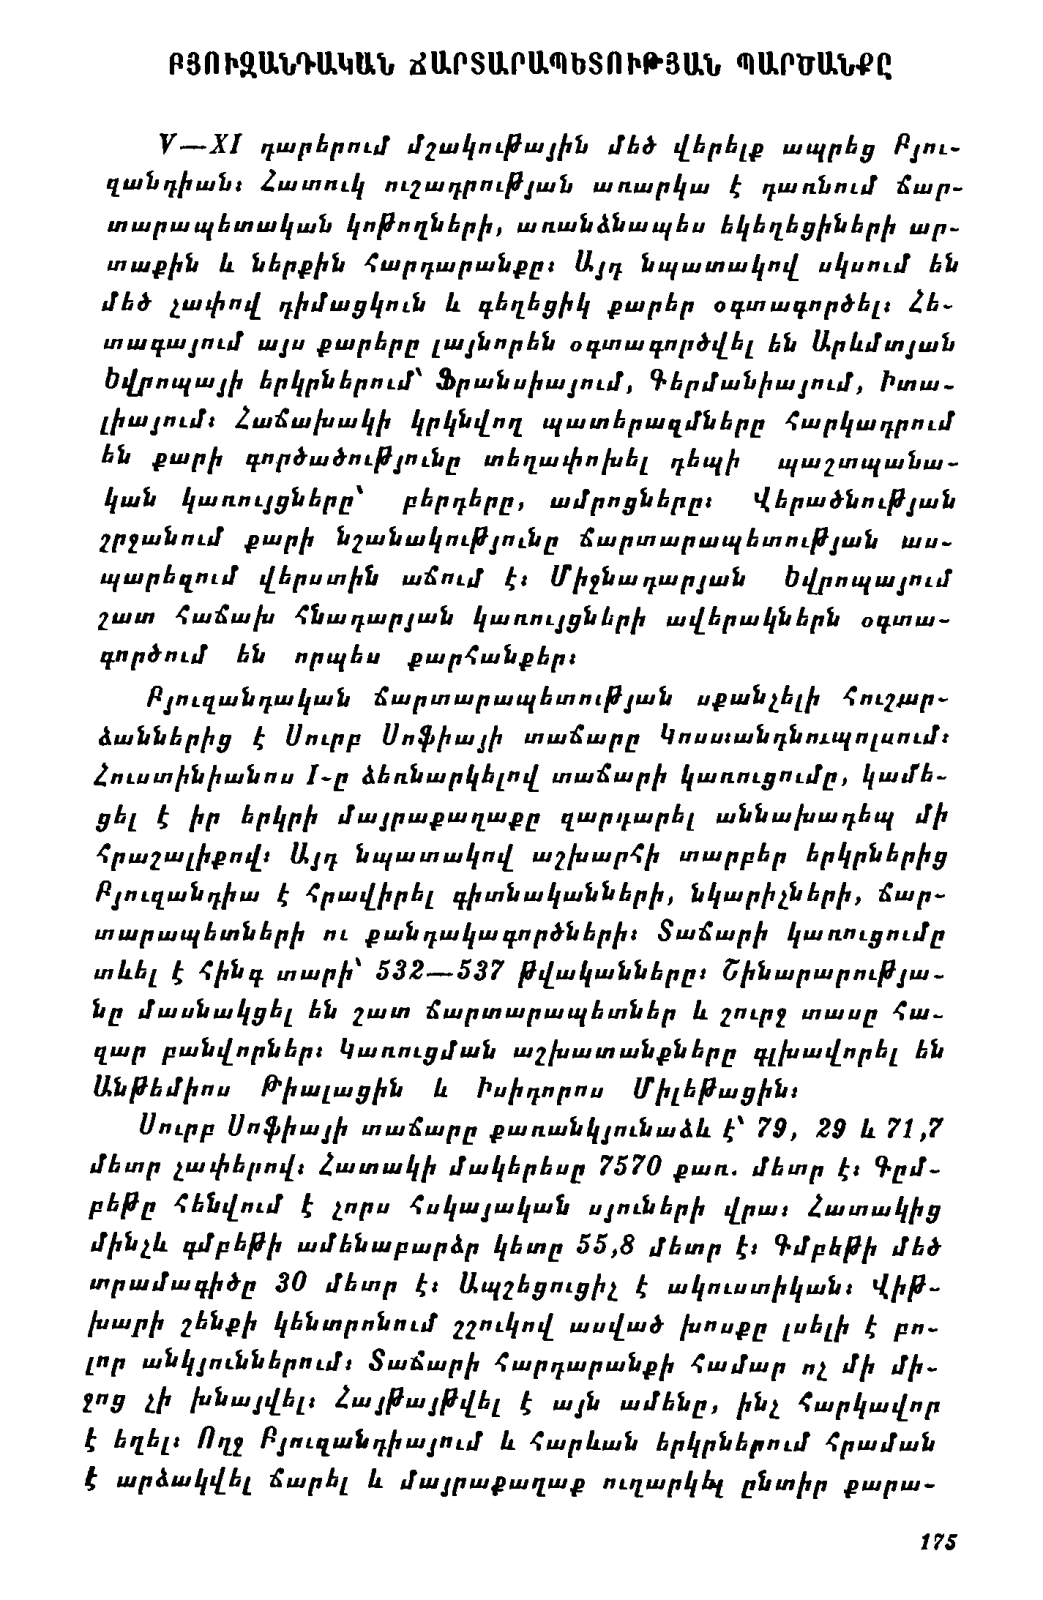 ԲՅՈՒԶԱՆԴԱԿԱՆ ՃԱՐՏԱՐԱՊԵՏՈՒԹՅԱՆ ՊԱՐԾԱՆՔԸ
V—XI դարերում մշակութային մեծ վերելք ապրեց Բյու-
զանդիան։ Հատուկ ուշադրության առարկա է դառնում ճար-
տարապետական կոթողների, առանձնապես եկեղեցիների ար-
տաքին և ներքին հարդարանքը։ Այդ նպատակով սկսում են
մեծ չափով դիմացկուն և գեղեցիկ քարեր օգտագործել։ Հե-
տագայում այս քարերը լայնորեն օգտագործվել են Արևմտյան
Եվրոպայի երկրներում՝ Ֆրանսիայում, Գերմանիայում, Իտա-
լիայում։ Հաճախակի կրկնվող պատերազմները հարկադրում
են քարի գործածությունը տեղափոխել դեպի պաշտպանա-
կան կառույցները՝ բերդերը, ամրոցները։ Վերածնության
շրջանում քարի նշանակությունը ճարտարապետության աս-
պարեզում վերստին աճում է։ Միջնադարյան Եվրոպայում
շատ հաճախ հնադարյան կառույցների ավերակներն օգտա-
գործում են որպես քարհանքեր։
Բյուզանդական ճարտարապետության սքանչելի հուշար-
ձաններից է Սուրբ Սոֆիայի տաճարը Կոստանդնուպոլսում։
Հուստինիանոս I-ը ձեռնարկելով տաճարի կառուցումը, կամե-
ցել է իր երկրի մայրաքաղաքը զարդարել աննախադեպ մի
հրաշալիքով։ Այդ նպատակով աշխարհի տարբեր երկրներից
Բյուզանդիա է հրավիրել գիտնականների, նկարիչների, ճար-
տարապետների ու քանդակագործների։ Տաճարի կառուցումը
տևել է հինգ տարի՝ 532—537 թվականները։ Շինարարությա-
նը մասնակցել են շատ ճարտարապետներ և շուրջ տասը հա-
զար բանվորներ։ Կառուցման աշխատանքները գլխավորել են
Անթեմիոս Թիալացին և Իսիդորոս Միլեթացին։
Սուրբ Սոֆիայի տաճարը քառանկյունաձև է՝ 79, 29 և 71,7
մետր չափերով։ Հատակի մակերեսը 7570 քառ. մետր է։ Գըմ-
բեթը հենվում է չորս հսկայական սյուների վրա։ Հատակից
մինչև գմբեթի ամենաբարձր կետը 55,8 մետր է։ Գմբեթի մեծ
տրամագիծը 30 մետր է։ Ապշեցուցիչ է ակուստիկան։ Վիթ-
խարի շենքի կենտրոնում շշուկով ասված խոսքը լսելի է բո-
լոր անկյուններում։ Տաճարի հարդարանքի համար ոչ մի մի-
ջոց չի խնայվել։ Հայթայթվել է այն ամենը, ինչ հարկավոր
է եղել։ Ողջ Բյուզանդիայում և հարևան երկրներում հրաման
է արձակվել ճարել և մայրաքաղաք ուղարկել ընտիր քարա-
175